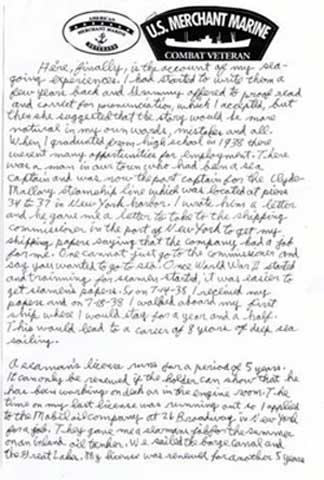 AMERICAN
MERCHANT MARINE
VETERANS
U.S. MERCHANT MARINE
COMBAT VETERAN
Here, finally, is the account of my sea-
going experiences. I had started to write them a
few years back and offered to proof read
and correct for pronunciation, which I accepted, but
then she suggested that the story would be more
natural in my own words, mistakes and all.
When I graduated from high school in 1938 there
werent many opportunities for employment. There
was a man in our town who had been a sea
captain and was now the port captain for the Clyde-
Mallory steamship line which was located at piers
34 to 37 in New York harbor. I wrote him a letter
and he gave me a letter to take to the shipping
commissioner in the port of New York to get my
shipping papers saying that the company had a job
for me. One cannot just go to the commissioner and
say you wanted to go to sea. Once World War II started
and trainning for seamen started, it was easier to
get seamens papers. So on 7-14-38 I received my
papers and on 7-18-38 I walked aboard my first
ship where I would stay for a year and a half.
This would lead to a career of 8 years of deep sea
sailing.
A seaman's license runs for a period of 5 years.
It can only be renewed if the holder can show that he
has been working on deck or in the engine room. The
time on my last license was running out so I applied
to the Mobil oil company at 26 Broadway in New York
for a job. They gave me a seaman job for the summer
on an inland oil tanker. We sailed the barge canal and
the Great Lakes. My license was renewed for another 5 years